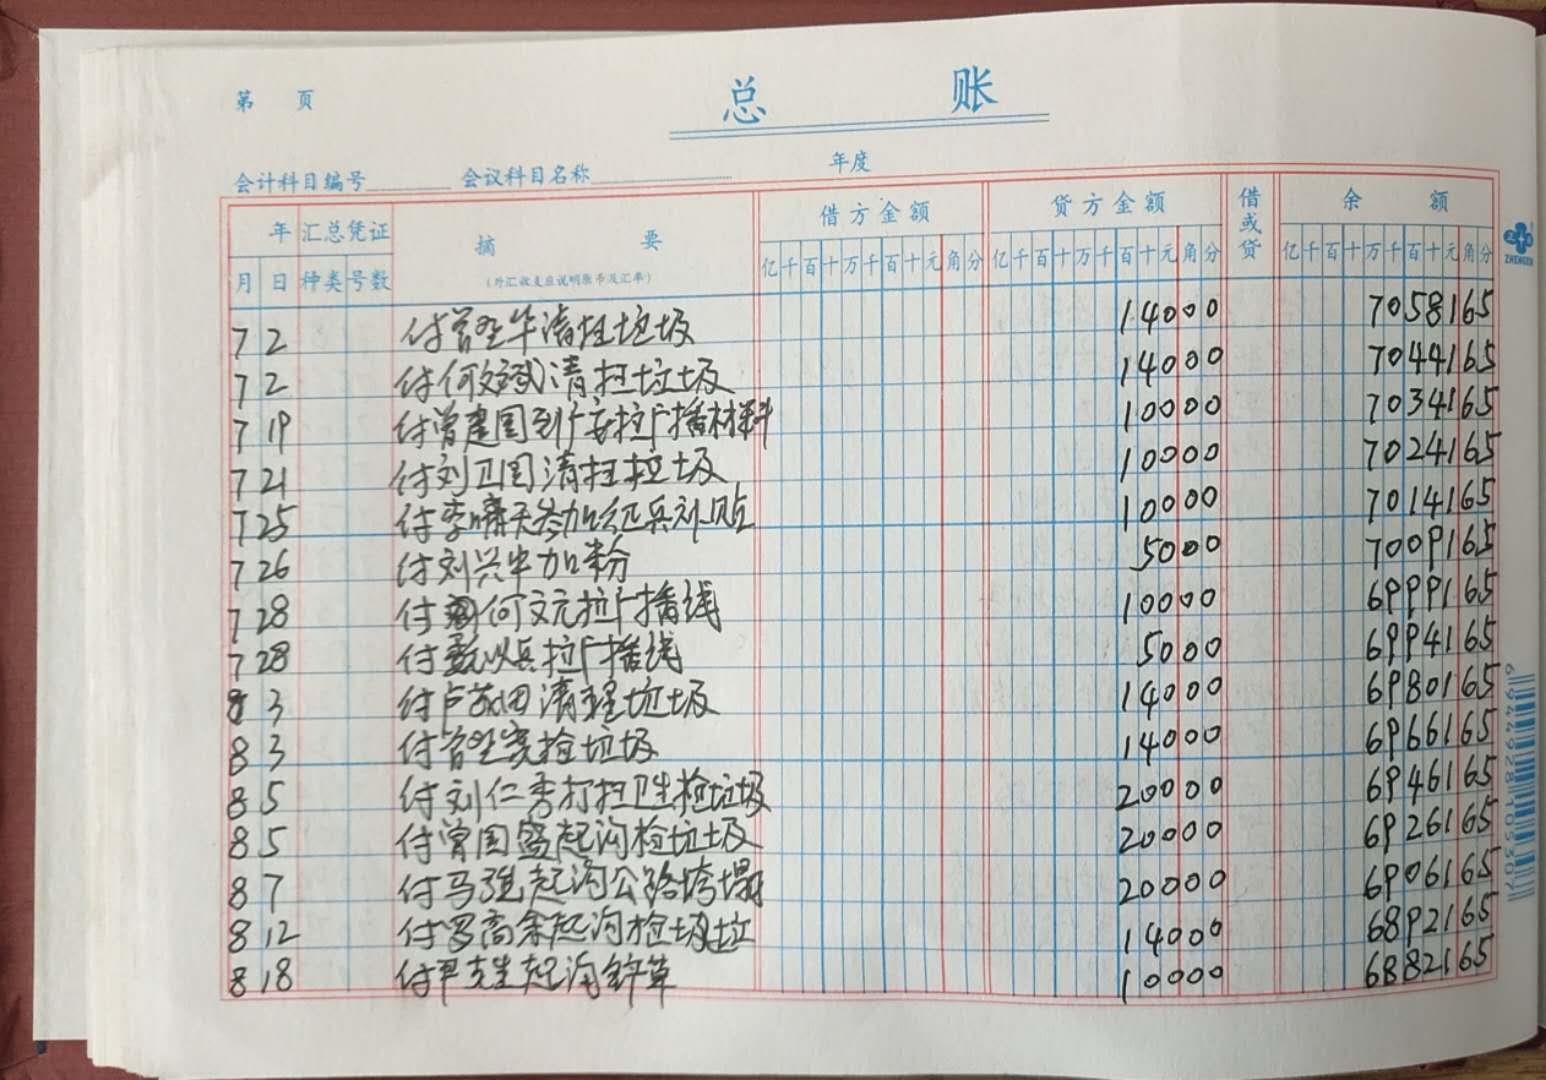 第 页
总 账
会计科目编号 会议科目名称 年度
年 汇总凭证 摘 要 借方金额 贷方金额 借或贷 余 额
月 日 种类 号数 (外汇收支应说明原币及汇率) 亿千百十万千百十元角分 亿千百十万千百十元角分 亿千百十万千百十元角分
7 2 付 华清扫垃圾 14000 7058165
7 2 付何文斌清扫垃圾 14000 7044165
7 19 付曾建国到广安拉广播材料 10000 7034165
7 21 付刘卫国清扫垃圾 10000 7024165
7 25 付李 天参加征兵补贴 10000 7014165
7 26 付刘兴华加粉 5000 7009165
7 28 付何文元拉广播线 10000 6999165
7 28 付 以兵拉广播线 5000 6994165
8 3 付卢 田清理垃圾 14000 6980165
8 3 付 捡垃圾 14000 6966165
8 5 付刘仁秀打扫卫生捡垃圾 20000 6946165
8 5 付曾国盛起沟捡垃圾 20000 6926165
8 7 付马 起沟公路垮塌 20000 6906165
8 12 付罗高 起沟捡圾垃 14000 6892165
8 18 付尹 生起沟铲草 10000 6882165
ZHENXIN
6944928105307